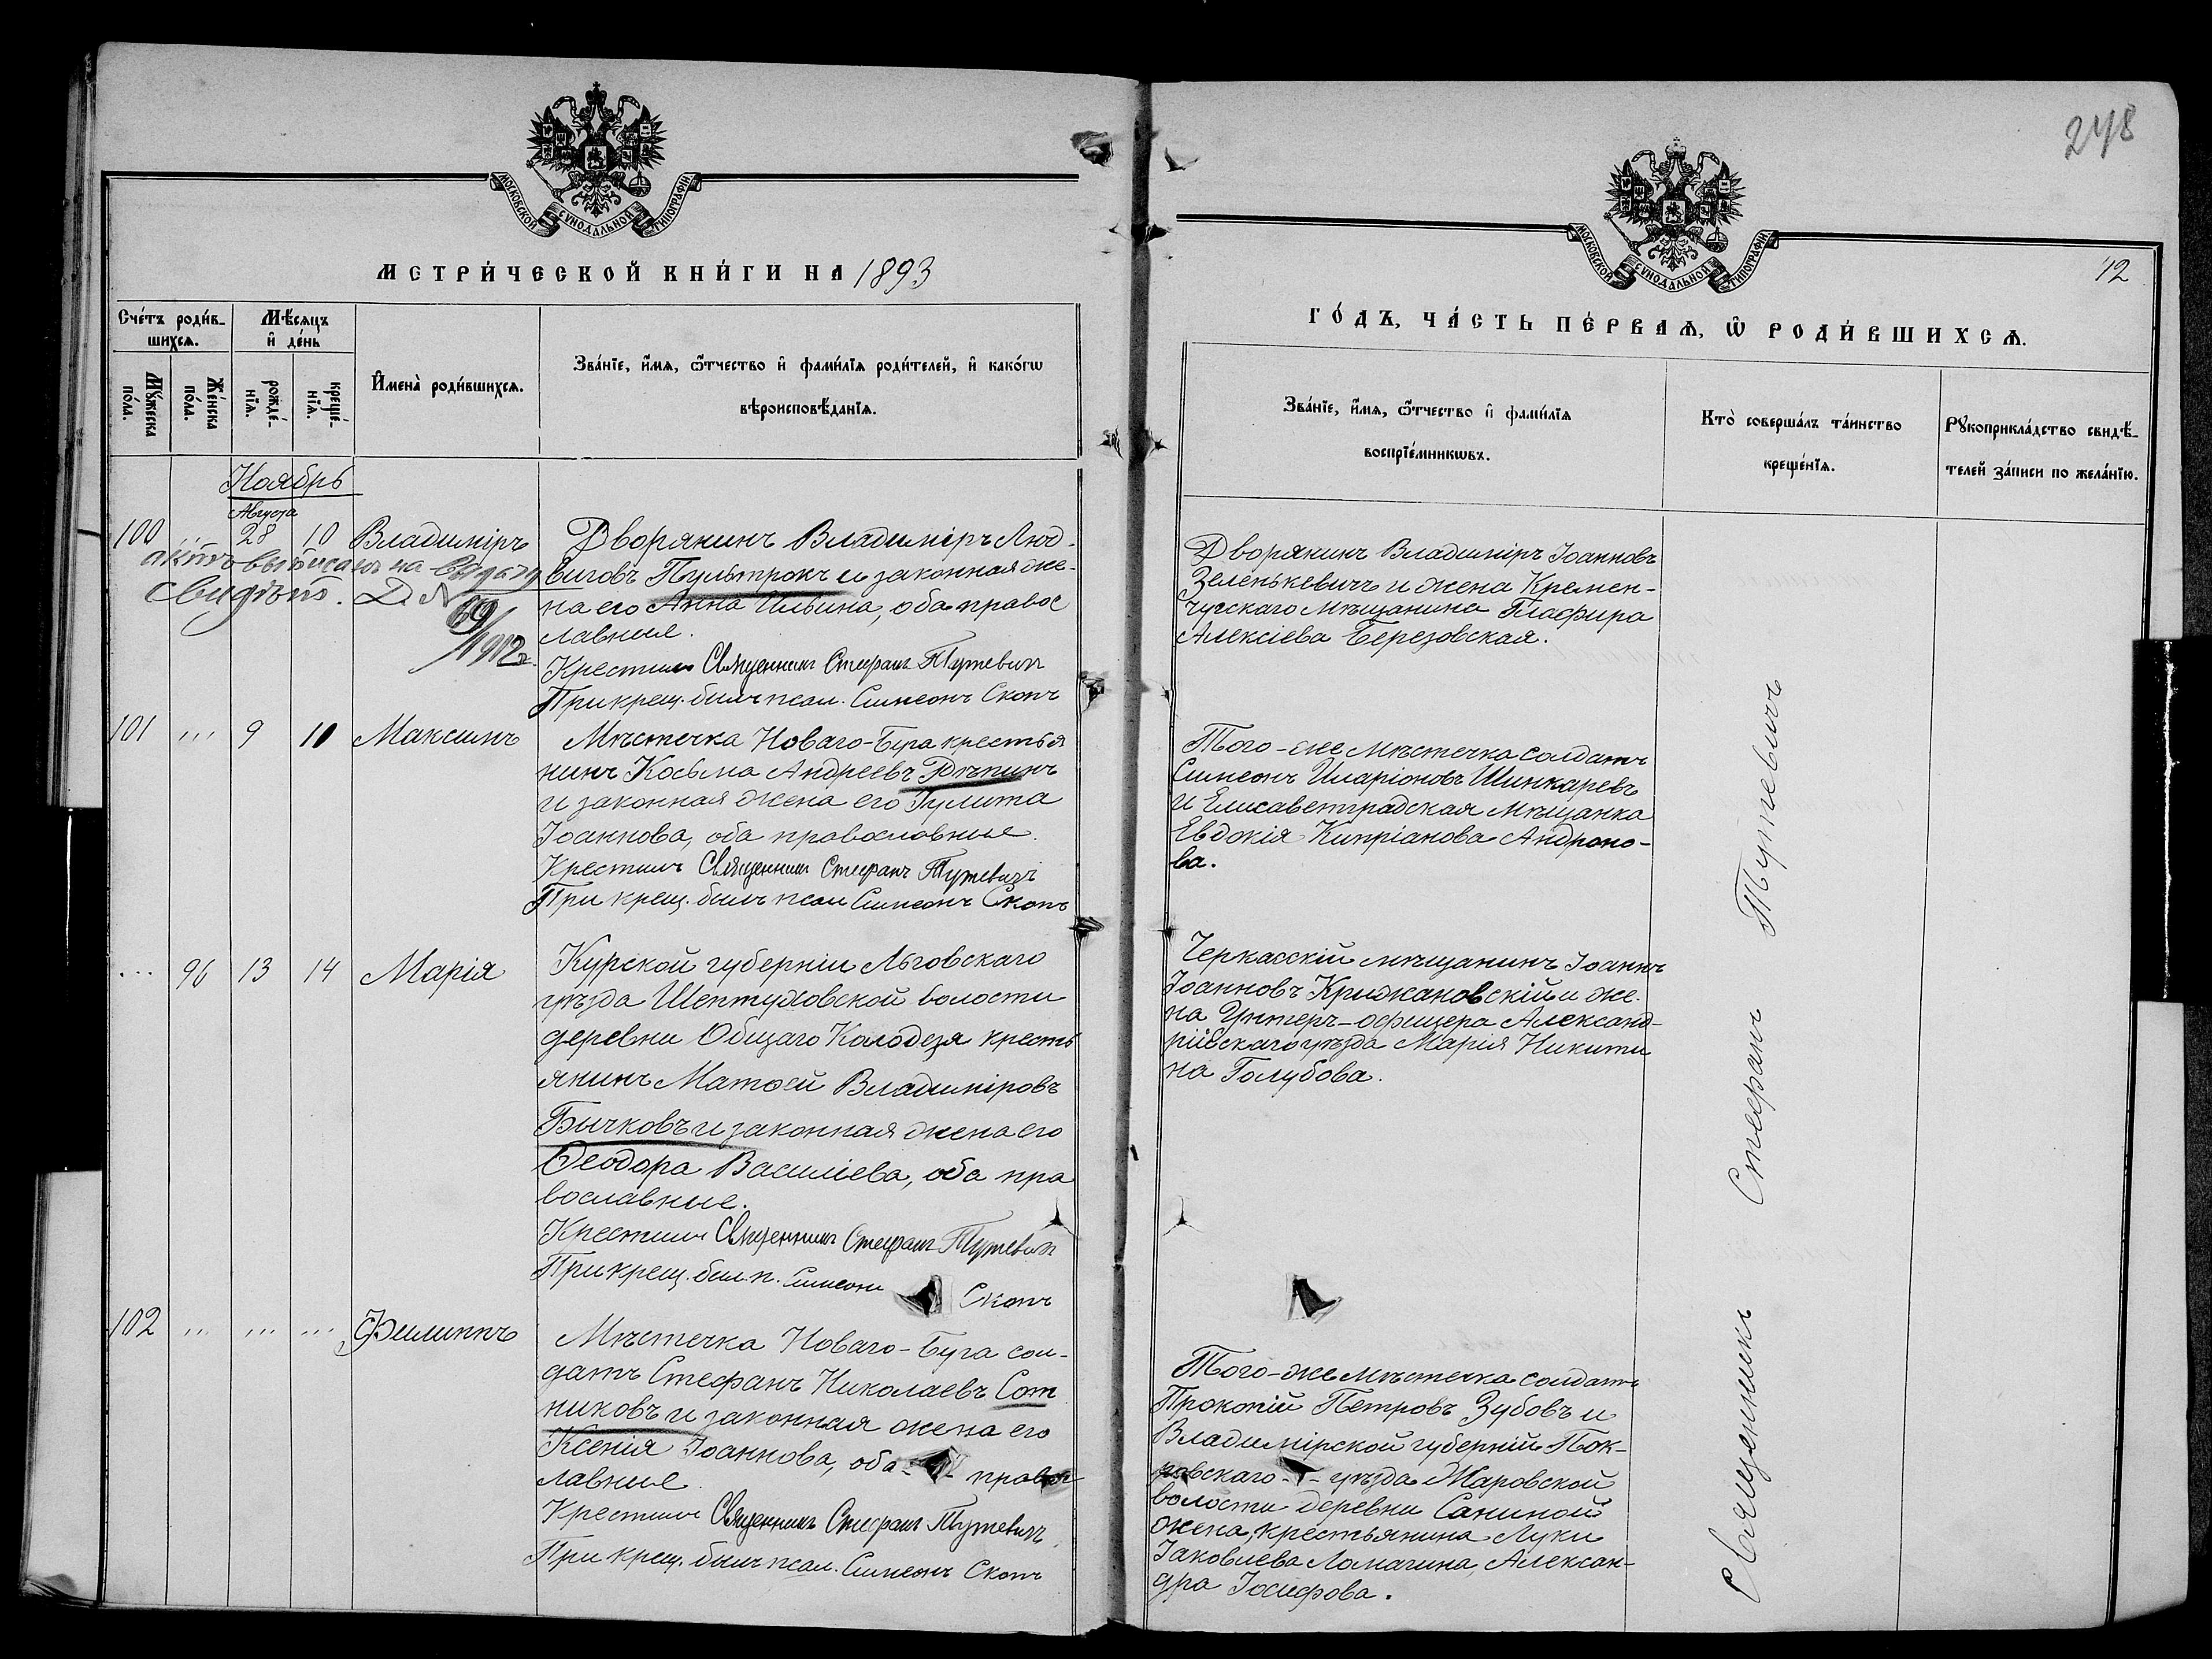 МОСКОВСКОЙ СѴНОДАЛЬНОЙ ТИПОГРАФІИ
МЕТРИ́ЧЕСКОЙ КНИ́ГИ НА 1893
Сче́тъ роди́в-
шихсѧ.
Мѣ́сѧцъ
и҆ де́нь
Мꙋ́жеска
по́ла.
Же́нска
по́ла.
рожде́-
нїѧ.
креще́-
нїѧ.
И҆мена̀ роди́вшихсѧ.
Зва́нїе, и҆́мѧ, ѻ҆́тчество и҆ фами́лїѧ роди́телей, и҆ како́гѡ
вѣроисповѣ́данїѧ.
Ноябрь
Августа
100 ... 28 10 Владиміръ
актъ выписанъ на выдачу
свидѣт. Д. №
69/1912г.
Дворянинъ Владиміръ Люд-
виговъ Пультрокъ и законная же-
на его Анна Ильина, оба правос
лавные.
Крестилъ Священникъ Стефанъ Тутевичъ
При крещ. былъ псал. Симеонъ Скопъ
101 ... 9 10 Максимъ
Мѣстечка Новаго-Буга крестья
нинъ Косьма Андреевъ Рѣпинъ
и законная жена его Іулита
Іоаннова, оба православные.
Крестилъ Священникъ Стефанъ Тутевичъ
При крещ. былъ псал Симеонъ Скопъ
... 96 13 14 Марія
Курской губерніи Льговскаго
уѣзда Шептуховской волости
деревни Общаго Колодезя кресть
янинъ Матѳей Владиміровъ
Бичковъ и законная жена его
Ѳеодора Василіева, оба пра
вославные.
Крестилъ Священникъ Стефанъ Тутевичъ
При крещ. был. п. Симеонъ Скопъ
102 ... ... ... Филиппъ
Мѣстечка Новаго-Буга сол-
датъ Стефанъ Николаевъ Сот
никовъ и законная жена его
Ксенія Іоаннова, оба правос-
лавные.
Крестилъ Священникъ Стефанъ Тутевичъ
При крещ. былъ псал. Симеонъ Скопъ
248
МОСКОВСКОЙ СѴНОДАЛЬНОЙ ТИПОГРАФІИ
42
ГО́ДЪ, ЧА́СТЬ ПЕ́РВАѦ, Ѡ҆ РОДИ́ВШИХСѦ.
Зва́нїе, и҆́мѧ, ѻ҆́тчество и҆ фами́лїѧ
воспрїе́мникѡвъ.
Кто̀ соверша́лъ та́инство
креще́нїѧ.
Рꙋкоприкла́дство свидѣ́-
телей за́писи по жела́нїю.
Дворянинъ Владиміръ Іоанновъ
Зеленькевичъ и жена Кремен-
чугскаго мѣщанина Глафира
Алексіева Березовская.
Того-же мѣстечка солдатъ
Симеонъ Иларіоновъ Шинкаревъ
и Елисаветградская мѣщанка
Евдокія Кипріанова Андроно-
ва.
Черкасскій мѣщанинъ Іоаннъ
Іоанновъ Крижановскій и же-
на Унтеръ-офицера Александ-
рійскаго уѣзда Марія Никити
на Голубова.
Того-же мѣстечка солдатъ
Прокопій Петровъ Зубовъ и
Владимірской губерніи Пок-
ровскаго уѣзда Жаровской
волости деревни Саниной
жена крестьянина Луки
Іаковлева Ломагина, Алексан-
дра Іосифова.
Священникъ Стефанъ Тутевичъ